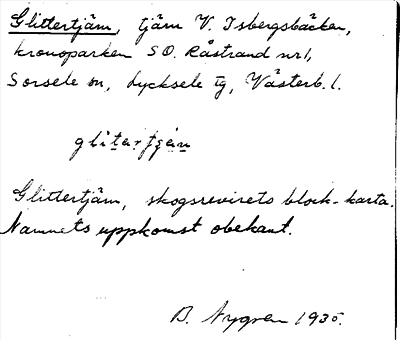 Glittertjärn, tjärn V. Isbergsbäcken,
kronoparken SO. Råstrand nr 1,
Sorsele sn, Lycksele tg, Västerb. l.
glitərtjä́rn
Glittertjärn, skogsrevirets block-karta.
Namnets uppkomst obekant.
B. Nygren 1935.